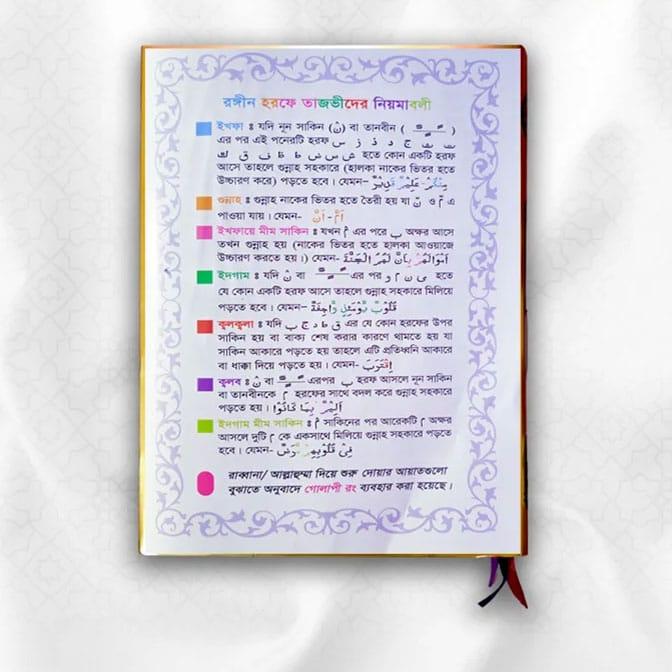 রঙ্গীন হরফে তাজভীদের নিয়মাবলী
ইখফা ঃ যদি নূন সাকিন (نْ) বা তানবীন ( ـًـٍـٌ )
এর পর এই পনেরটি হরফ ت ث ج د ذ ز س
ش ص ض ط ظ ف ق ك হতে কোন একটি হরফ
আসে তাহলে গুন্নাহ সহকারে (হালকা নাকের ভিতর হতে
উচ্চারণ করে) পড়তে হবে। যেমন–
গুন্নাহ ঃ গুন্নাহ নাকের ভিতর হতে তৈরী হয় যা ن ও م এ
পাওয়া যায়। যেমন- اَمَّ - اَنَّ
ইখফায়ে মীম সাকিন ঃ যখন مْ এর পরে ب অক্ষর আসে
তখন গুন্নাহ হয় (নাকের ভিতর হতে হালকা আওয়াজে
উচ্চারণ করতে হয়।) যেমন– اَمْوَالَهُمْ بِاَنَّ لَهُمُ الْجَنَّةَ
ইদগাম ঃ যদি نْ বা ـًـٍـٌ এর পর ى ن م و হতে
যে কোন একটি হরফ আসে তাহলে গুন্নাহ সহকারে মিলিয়ে
পড়তে হবে। যেমন– قُلُوْبٌ يَّوْمَئِذٍ وَّاجِفَةٌ
কুলকুলা ঃ যদি ق ط د ج ب এর যে কোন হরফের উপর
সাকিন হয় বা বাক্য শেষ করার কারণে থামতে হয় যা
সাকিন আকারে পড়তে হয় তাহলে এটি প্রতিধ্বনি আকারে
বা ধাক্কা দিয়ে পড়তে হয়। যেমন- اِقْتَرَبَ
কুলব ঃ نْ বা ـًـٍـٌ এরপর ب হরফ আসলে নূন সাকিন
বা তানবীনকে م হরফের সাথে বদল করে গুন্নাহ সহকারে
পড়তে হয়। اَلِيْمٌۢ بِمَا كَانُوْا
ইদগাম মীম সাকিন ঃ مْ সাকিনের পর আরেকটি م অক্ষর
আসলে দুটি م কে একসাথে মিলিয়ে গুন্নাহ সহকারে পড়তে
হবে। যেমন– فِىْ قُلُوْبِهِمْ مَّرَضٌ
রাব্বানা/ আল্লাহুম্মা দিয়ে শুরু দোয়ার আয়াতগুলো
বুঝাতে অনুবাদে গোলাপী রং ব্যবহার করা হয়েছে।